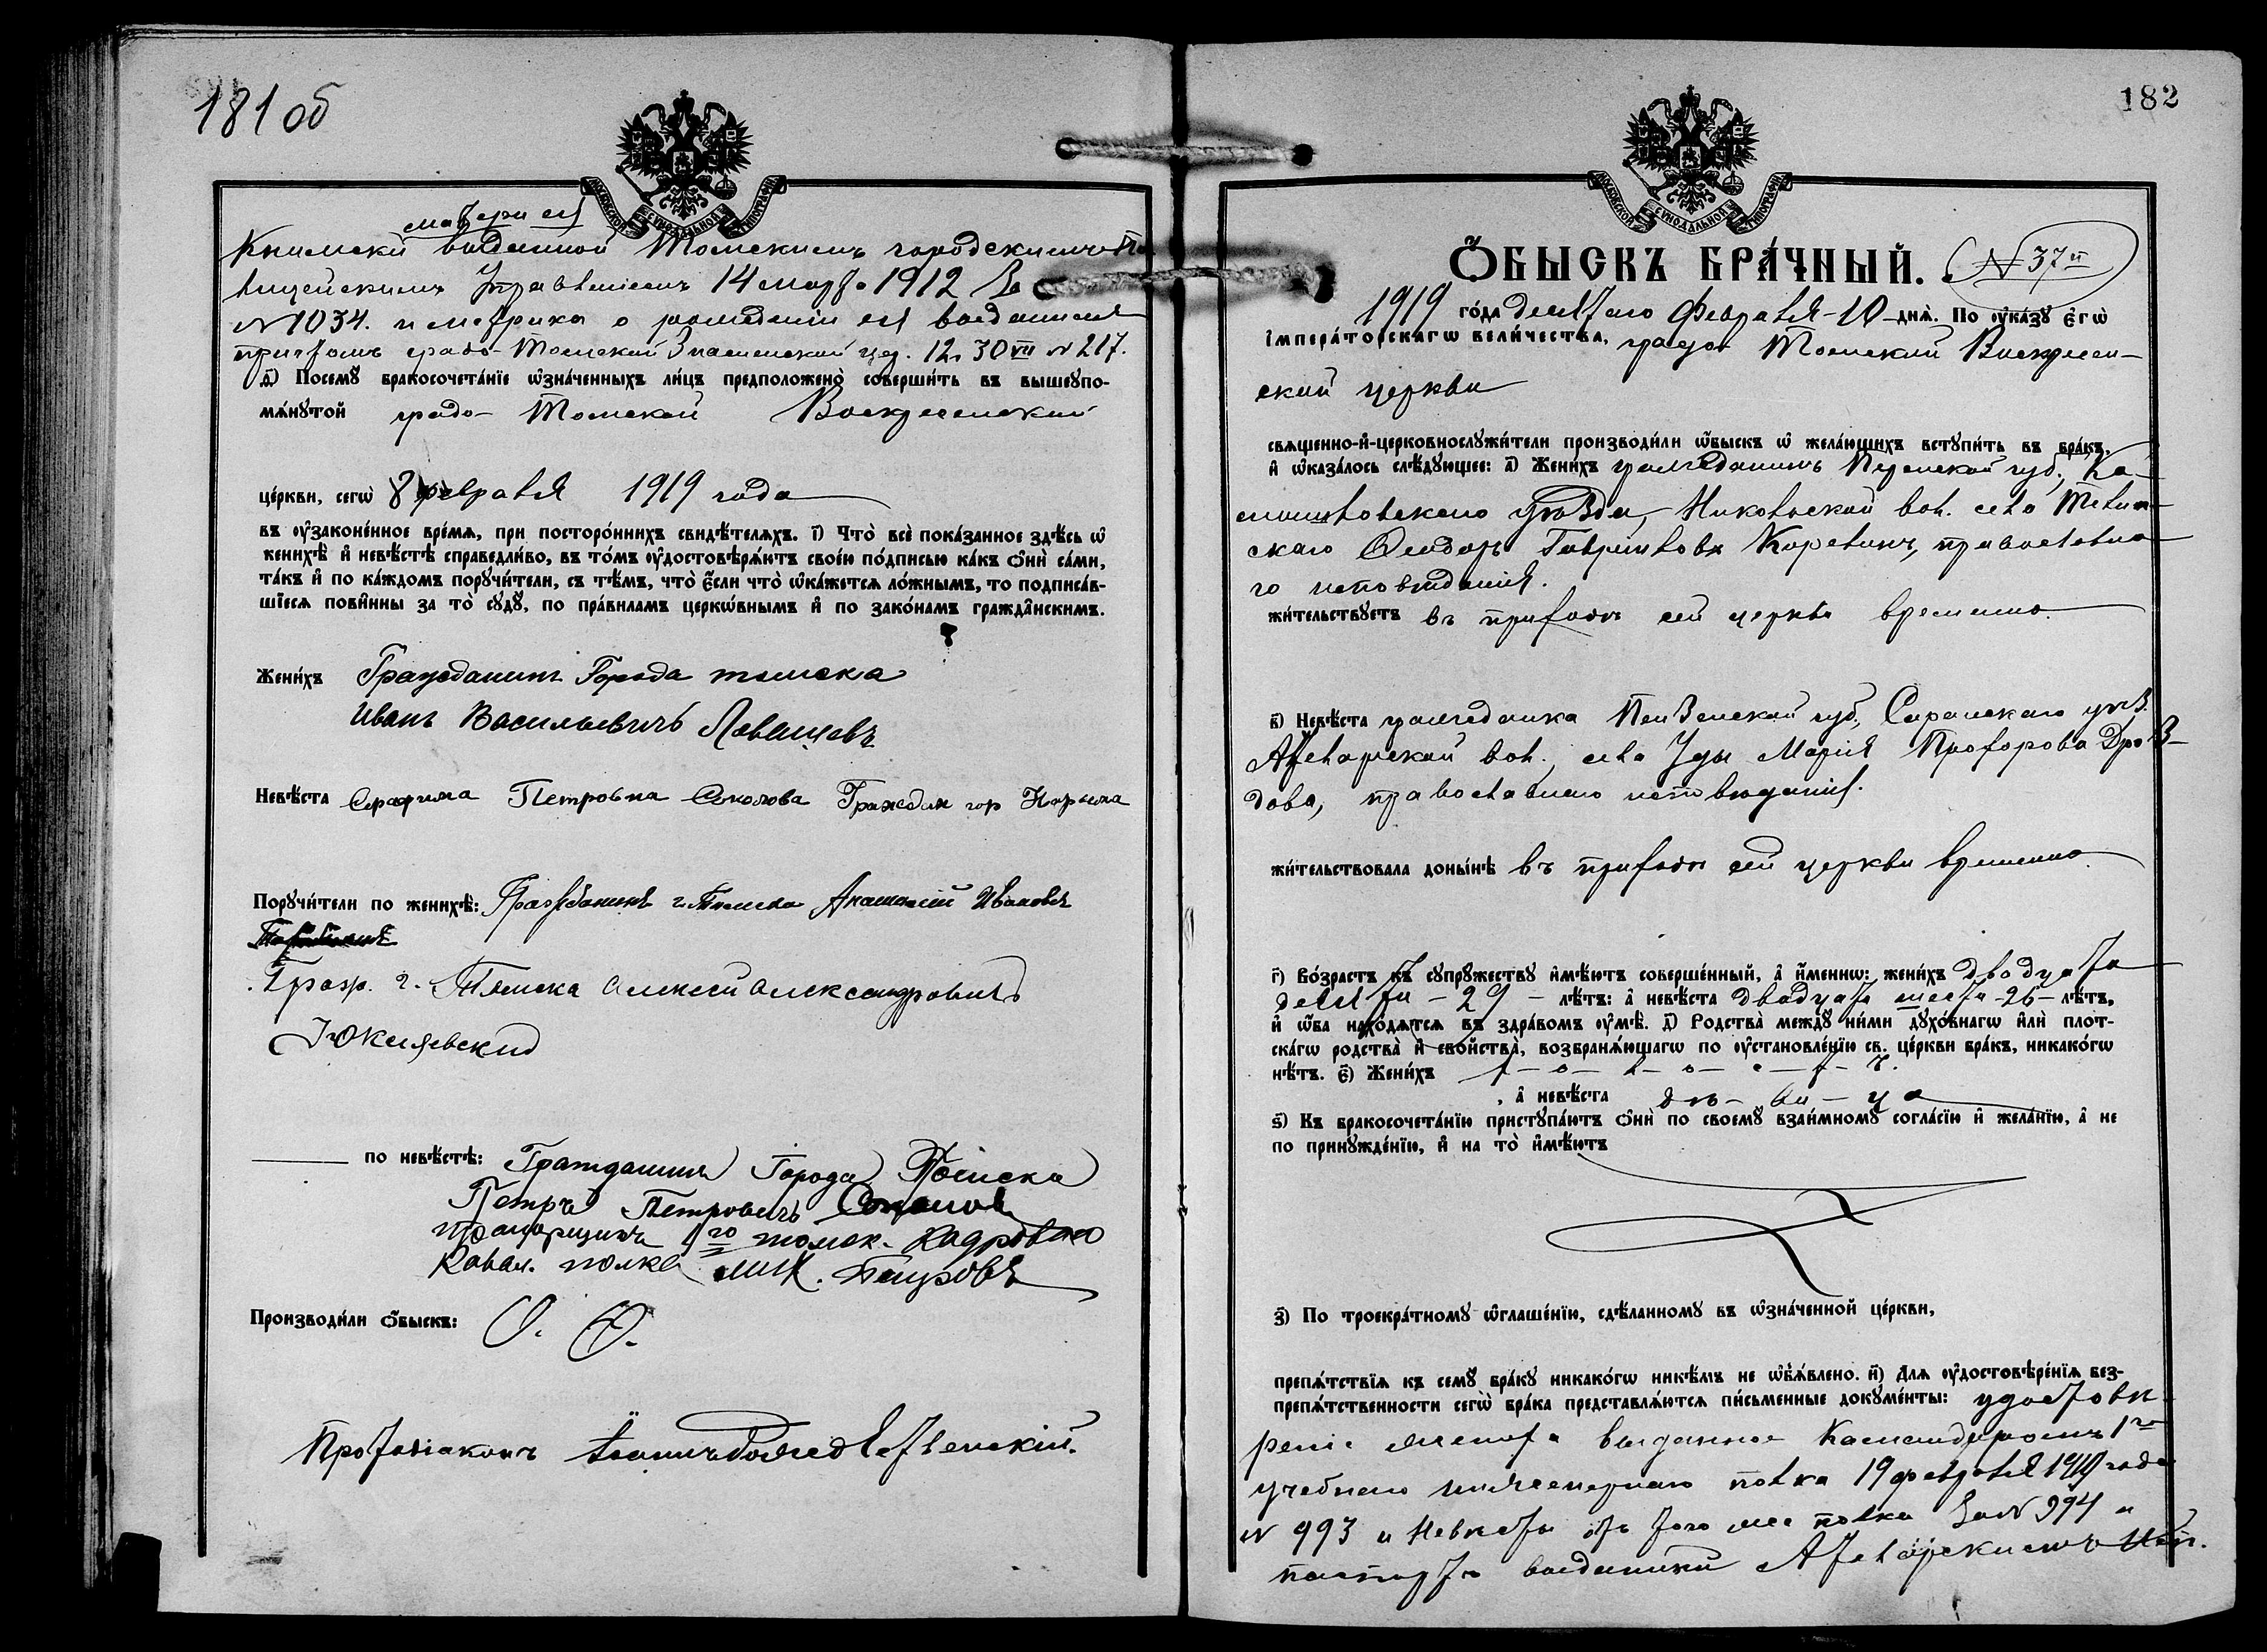 181 об
МОСКОВСКОЙ СѴНОДАЛЬНОЙ ТИПОГРАФІИ
матери ея
Книжкѣ выданной Томскимъ городскимъ По
лицейскимъ Управленіемъ 14 марта 1912 За
№ 1034. и метрика о рожденіи ея выданная
градо-Томской Знаменской цер. 12. 30 VII № 217.
д҃) Посемꙋ̀ бракосочета́нїе ѡ҆зна́ченныхъ ли́цъ предположено̀ соверши́ть въ вышеꙋпо-
мѧ́нꙋтой градо-Томской Воскресенской
це́ркви, сегѡ̀ 8 февраля 1919 года
въ ᲂу҆зако́ненное вре́мѧ, при посторо́ннихъ свидѣ́телѧхъ. і҃) Что̀ всѐ пока́занное здѣ́сь ѡ҆
женихѣ̀ и҆ невѣ́стѣ справедли́во, въ то́мъ ᲂу҆достовѣрѧ́ютъ свое́ю по́дписью ка́къ ѻ҆нѝ са́ми,
та́къ и҆ по ка́ждомъ порꙋчи́тели, съ тѣ́мъ, что̀ є҆́сли что̀ ѡ҆ка́жетсѧ ло́жнымъ, то подписа́в-
шїесѧ пови́нны за то̀ сꙋдꙋ̀, по пра́виламъ церкѡ́внымъ и҆ по зако́намъ гражда́нскимъ.
Жени́хъ Гражданинъ Города томска
Иванъ Васильевичъ Левашевъ
Невѣ́ста Серафима Петровна Соколова Граждан гор Нарыма
Порꙋчи́тели по женихѣ̀: Гражданинъ г. Томска Анатолій Ивановъ
Граж. г. Томска Алексей Александровичъ
по невѣ́стѣ: Гражданинъ Города Томска
Петръ Петровичъ Соколов
прапорщикъ 1го томск. Кадроваго
Кавал. полка
Произвѡди́ли ѻ҆́быскъ: О. Ѳ.
Протодіаконъ Іоаннъ Рождественскій.
182
МОСКОВСКОЙ СѴНОДАЛЬНОЙ ТИПОГРАФІИ
Ѻ҆́БЫСКЪ БРА́ЧНЫЙ. № 37й
1919 го́да десятаго Февраля - 10 - днѧ̀. По ᲂу҆ка́зꙋ є҆гѡ̀
і҆мпера́торскагѡ вели́чества, градо Томской Воскресен-
ской церкви
свѧще́нно-и҆-церковнослꙋжи́тели производи́ли ѡ҆́быскъ ѡ҆ жела́ющихъ встꙋпи́ть въ бра́къ,
и҆ ѡ҆каза́лось слѣ́дꙋющее: а҃) Жени́хъ гражданинъ Пермской губ., Ка-
мышловскаго уѣзда, Никольской вол. села
скаго Ѳеодоръ Гавріиловъ Коревинъ, православна-
го исповѣданія.
жи́тельствꙋетъ въ приходѣ сей церкви временно.
в҃) Невѣ́ста гражданка Пензенской губ., Саранскаго уѣз.
вол., села Уды Марія Прохорова Дроз-
дова, православнаго исповѣданія.
жи́тельствовала доны́нѣ въ приходѣ сей церкви временно
г҃) Во́зрастъ къ сꙋпрꙋ́жествꙋ и҆мѣ́ютъ соверше́нный, а҆ и҆́менно: жени́хъ двадцати
девяти - 29 - лѣ́тъ: а҆ невѣ́ста двадцати шести - 26 - лѣ́тъ,
и҆ ѻ҆́ба нахо́дѧтсѧ въ здра́вомъ ᲂу҆мѣ̀. д҃) Родства̀ междꙋ̀ ни́ми дꙋхо́внагѡ и҆лѝ плот-
ска́гѡ родства̀ и҆ свойства̀, возбранѧ́ющагѡ по ᲂу҆становле́нїю св. це́ркви бра́къ, никако́гѡ
нѣ́тъ. є҃) Жени́хъ х-о-л-о-с-т-ъ.
, а҆ невѣ́ста дѣ-ви-ца
ѕ҃) Къ бракосочета́нїю пристꙋпа́ютъ ѻ҆нѝ по своемꙋ̀ взаи́мномꙋ согла́сїю и҆ жела́нїю, а҆ не
по принꙋжде́нїю, и҆ на то̀ и҆мѣ́ютъ
з҃) По троекра́тномꙋ ѡ҆глаше́нїю, сдѣ́ланномꙋ въ ѡ҆зна́ченной це́ркви,
препѧ́тствїѧ къ семꙋ̀ бра́кꙋ никако́гѡ никѣ́мъ не ѡ҆б̾ѧ́влено. и҃) Длѧ ᲂу҆достовѣре́нїѧ без-
препѧ́тственности сегѡ̀ бра́ка представлѧ́ютсѧ пи́сьменные докꙋме́нты: удостовѣ-
реніе жениха выданное Командиромъ 1го
учебнаго инженернаго полка 19 февраля 1919 года
№ 993 и невѣсты отъ того же полка За № 994 и
паспортъ выданный